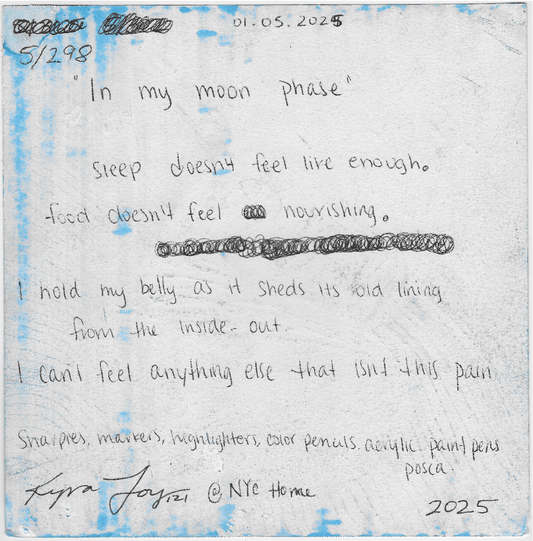 01.05.2025
5/298
"In my moon phase"
sleep doesn't feel like enough.
food doesn't feel nourishing.
I hold my belly as it sheds its old lining
from the inside-out.
I can't feel anything else that isn't this pain
Sharpies, markers, highlighters, color pencils. acrylic. paint pens
posca.
@ NYC Home
2025